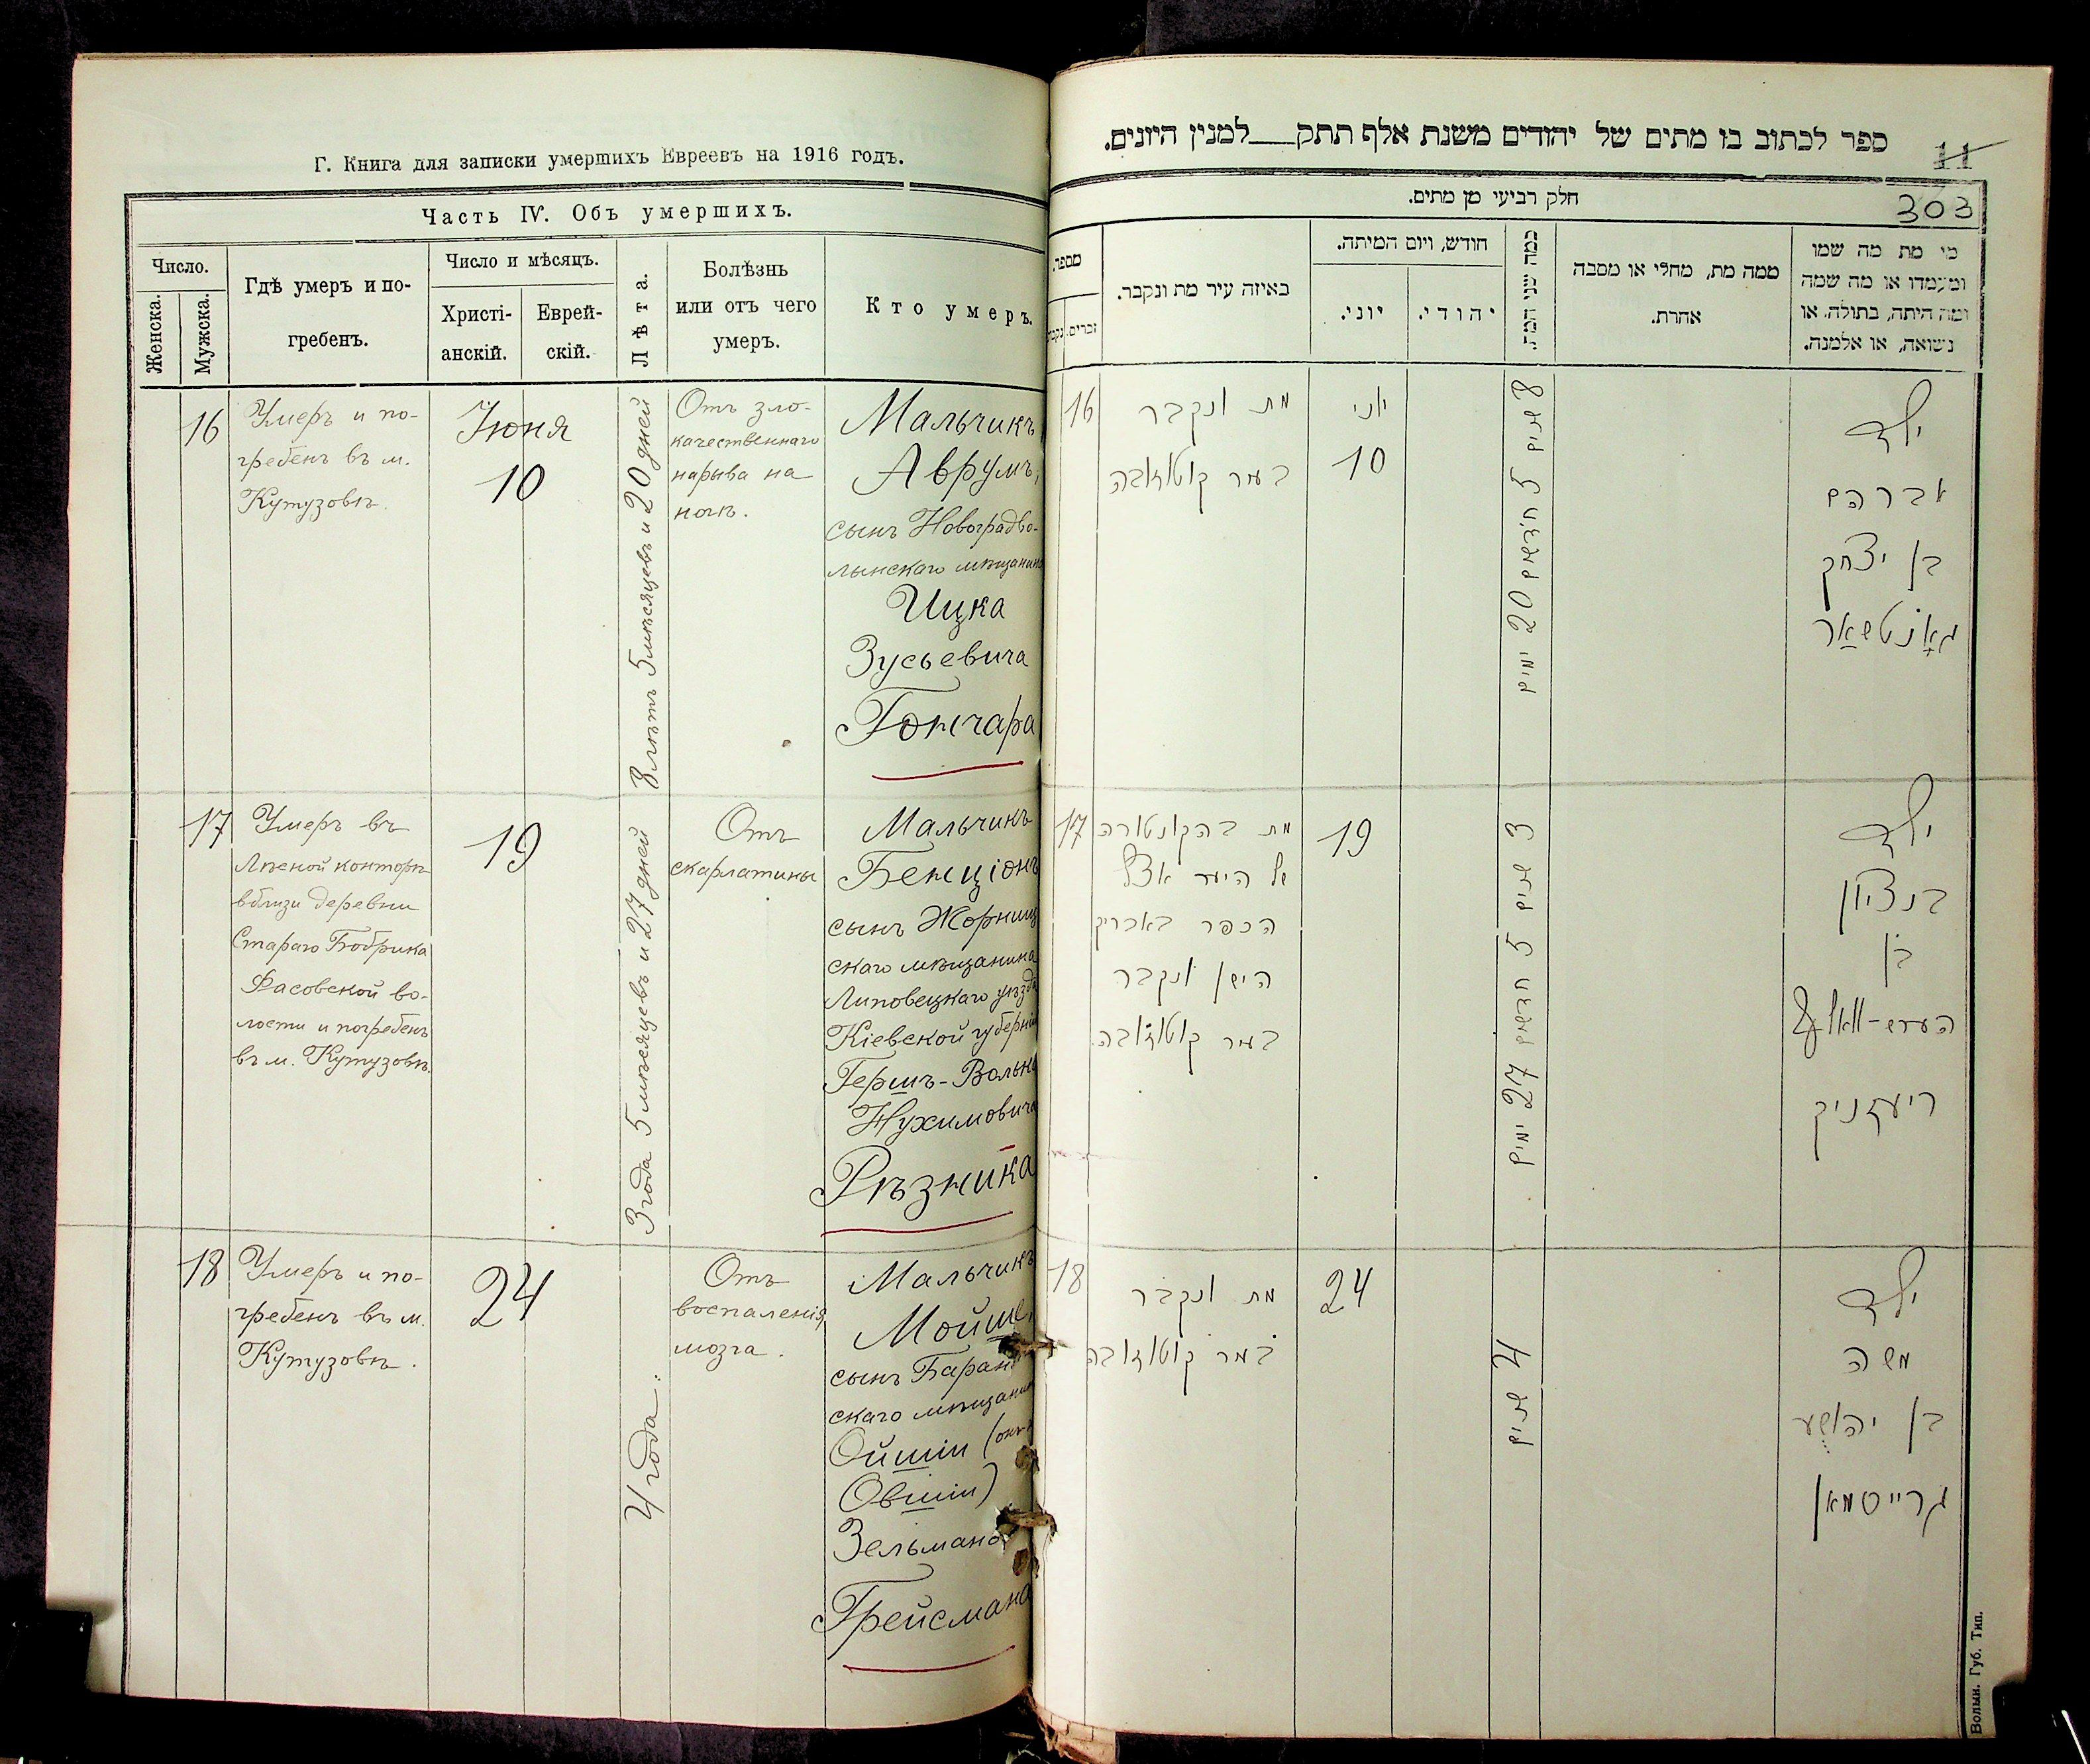 Г. Книга для записки умершихъ Евреевъ на 1916 годъ.
Часть IV. Объ умершихъ.
Число.
Женска.
Мужска.
Гдѣ умеръ и по-
гребенъ.
Число и мѣсяцъ.
Христі-
анскій.
Еврей-
скій.
Лѣта.
Болѣзнь
или отъ чего
умеръ.
Кто умеръ.
16
Умеръ и по-
гребенъ въ м.
Кутузовѣ.
Іюня
10
8 лѣтъ 5 мѣсяцевъ и 20 дней
Отъ зло-
качественнаго
нарыва на
ногѣ.
Мальчикъ
Аврумъ,
сынъ Новоградво-
лынскаго мѣщанина
Ицка
Зусьевича
Гончара
17
Умеръ въ
Лѣсной конторѣ
вблизи деревни
Стараго Бобрика
Фасовской во-
лости и погребенъ
въ м. Кутузовѣ.
19
3 года 5 мѣсяцевъ и 27 дней
Отъ
скарлатины
Мальчикъ
Бенціонъ
сынъ Жорнищ
скаго мѣщанина
Липовецкаго уѣзда
Кіевской губерніи
Гершъ-Волька
Нухимовича
Рѣзника
18
Умеръ и по-
гребенъ въ м.
Кутузовѣ.
24
4 года.
Отъ
воспаленія
мозга.
Мальчикъ
Мойше,
сынъ Баран
скаго мѣщанин
Ойшіи (онъ
Овшіи)
Зельмана
Грейсмана
ספר לכתוב בו מתים של יהודים משנת אלף תתק___למנין היונים.
11
303
חלק רביעי מן מתים.
מספר.
זכרים.
נקבו
באיזה עיר מת ונקבר.
חודש, ויום המיתה.
יוני.
יהודי.
כמה שני המת.
ממה מת, מחלי או מסבה
אחרת.
מי מת מה שמו
ומעמדו או מה שמה
ומה היתה, בתולה, או
נשואה, או אלמנה.
16
מת ונקבר
בעיר קוטוזובה
יוני
10
8 שנים 5 חדשים 20 ימים
ילד
אברהם
בן יצחק
גאָנטשאַר
17
מת בהקונטורה
של היער אצל
הכפר באבריק
הישן ונקבר
בעיר קוטוזובה
19
3 שנים 5 חדשים 27 ימים
ילד
בנציון
בן
הערש-וואלף
ריעזניק
18
מת ונקבר
בעיר קוטוזובה
24
4 שנים
ילד
משה
בן יהושע
גרייסמאן
Волын. Губ. Тип.